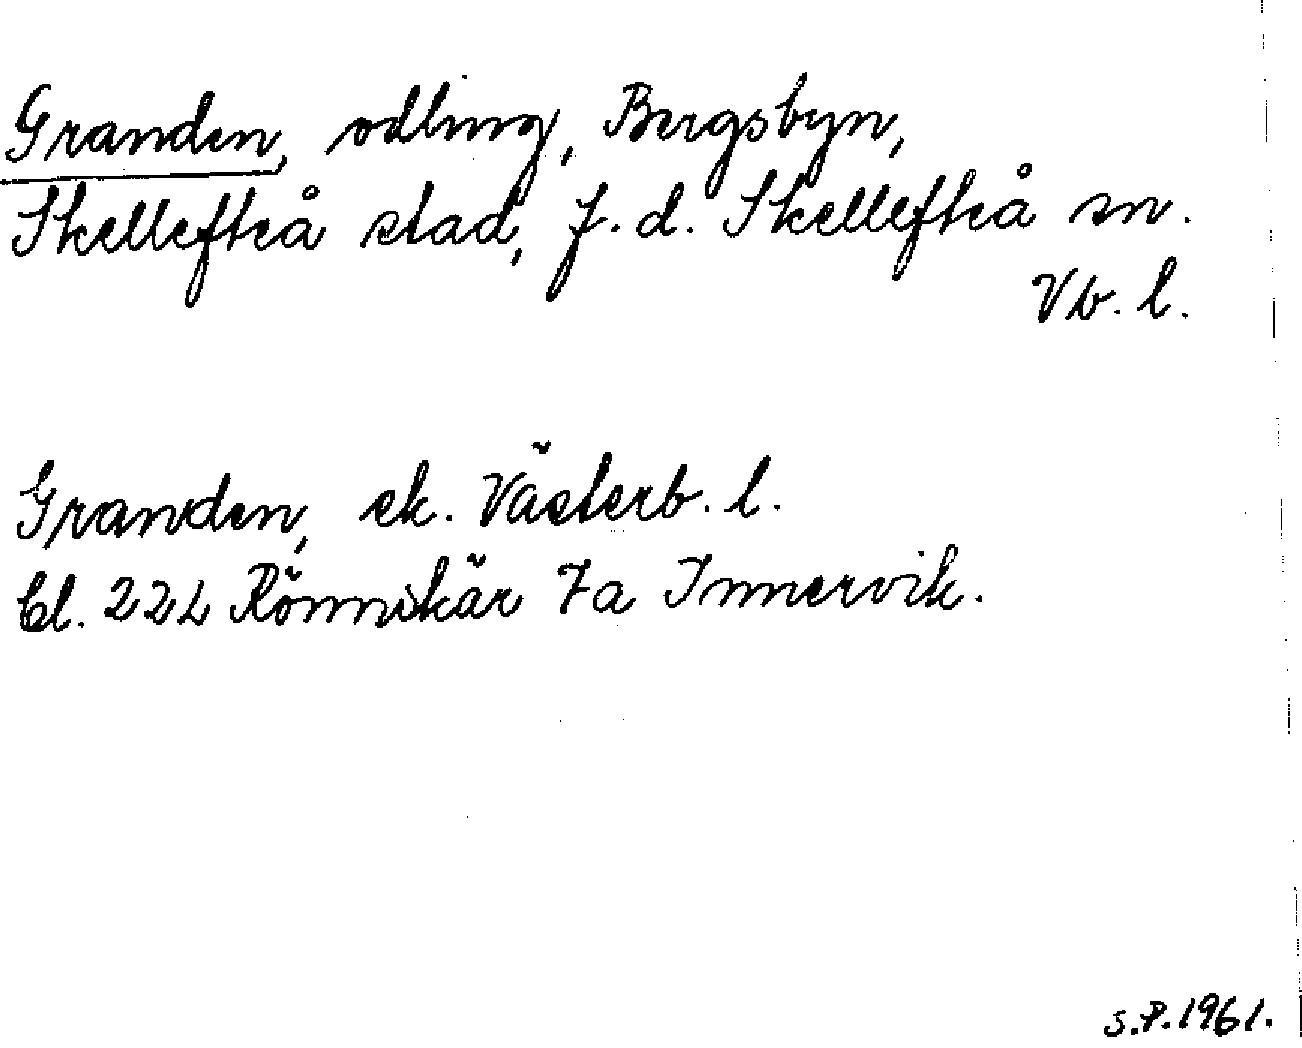 Granden, odling, Bergsbyn,
Skellefteå stad, f.d. Skellefteå sn.
Vb. l.
Granden, ek. Västerb. l.
bl. 22L Rönnskär 7a Innervik.
S.P. 1961.